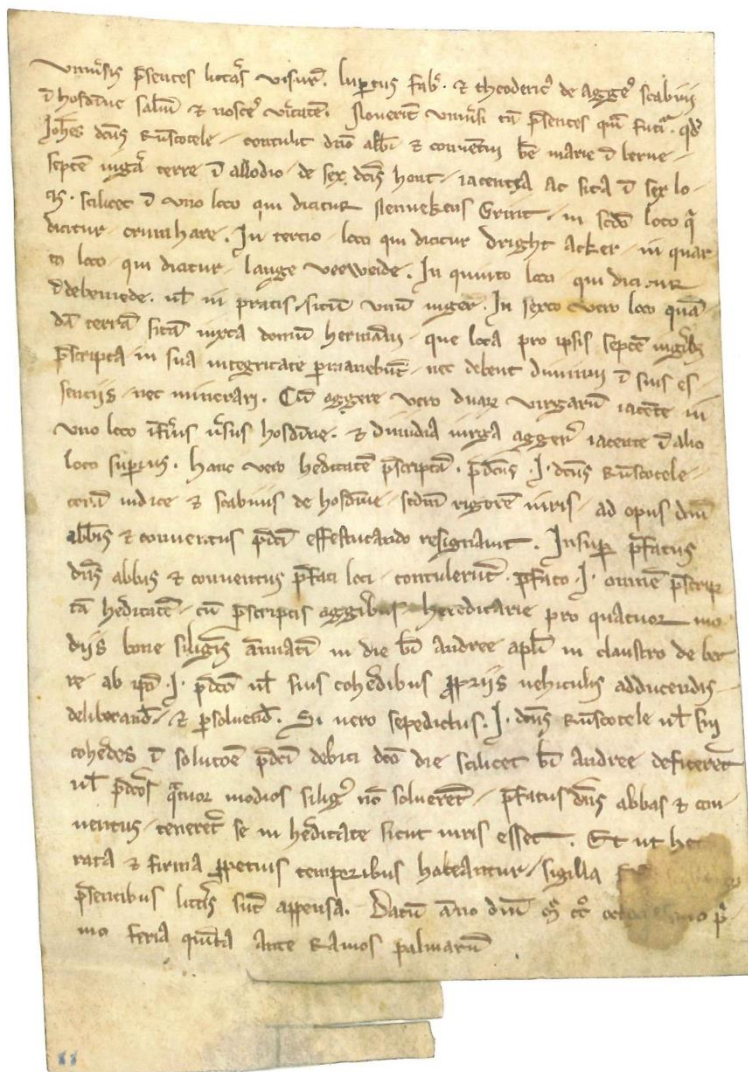 Univ'sis p'sentes litt'as visur'. lup'tus fab'. & theoderic' de Agge' scabini
ī hosdinc salm̄ & nosce' v'itatē. Nover̄it univ'si tā p'sentes qm̄ futi'. qd'
Joh̄es dc̄us Ruscotele - contulit dn̄o abb̄i & conventui be' marie ī berne -
septē iug'a terre ī allodio - de sex dc̄is hont - iacentia Ac sita ī sex lo-
cis. scilicet ī uno loco qui dicitur Nennekens Grint. in sc̄do loco q'
dicitur - crumhare. In tercio - loco qui dicitur dright Acker - in quar
to loco - qui dicitur - lange veeweide. In quinto loco qui dicitur
ul' in pratis. sitū unū iuger. In sexto vero loco quā-
dā terrā sitā iuxta domū hermāni - que loca pro ipsis septē iug'ib;
p'scripta in sua integritate p'manebūt - nec debent dimini ī suis es-
senciis - nec minorari. Cū aggere vero duar' virgarū iacēte in
uno loco īf'ius v'sus hosdinc. & dimidia virga agger' iacente ī alio
loco sup'ius. hanc vero hed'itatē p'scriptā. p'dc̄us. J. dc̄us Ruscotele -
corā iudice & scabinis de hosdinc - sc̄dm̄ rigorē iuris - ad opus dn̄i
abb̄is & conventus p'dc̄i effestucando resignavit. Insup' p'fatus
dn̄s abbas & conventus p'fati loci - contulerūt. p'fato. J. omnē p'scrip
tā hed'itatē - cū p'scriptis aggeribus hereditarie pro quatuor mo
diis bone siliginis ānuatī in die bi' andree apl'i in claustro de ber
ne ab ip̄o. J. p'dc̄o ul' suis cohed'ibus p'priis vehiculis adducendis -
deliberand' - & p'solvend'. Si vero sepedictus. J. dc̄us Ruscotele ul' sui
cohed'es ī solutōe p'dc̄i debiti dc̄o die scilicet bi' Andree deficeret
ul' p'dc̄os q'tuor modios silig' nō solverēt - p'fatus dn̄s abbas & con-
ventus - teneret' se in hed'itate sicut iuris esset. Et ut hec
rata & firma p'petuis temporibus habeantur / sigilla
p'sentibus litt'is sūt appensa. Datū āno dn̄i m̊ cc̊ p'
mo feria quīta ante Ramos palmarū